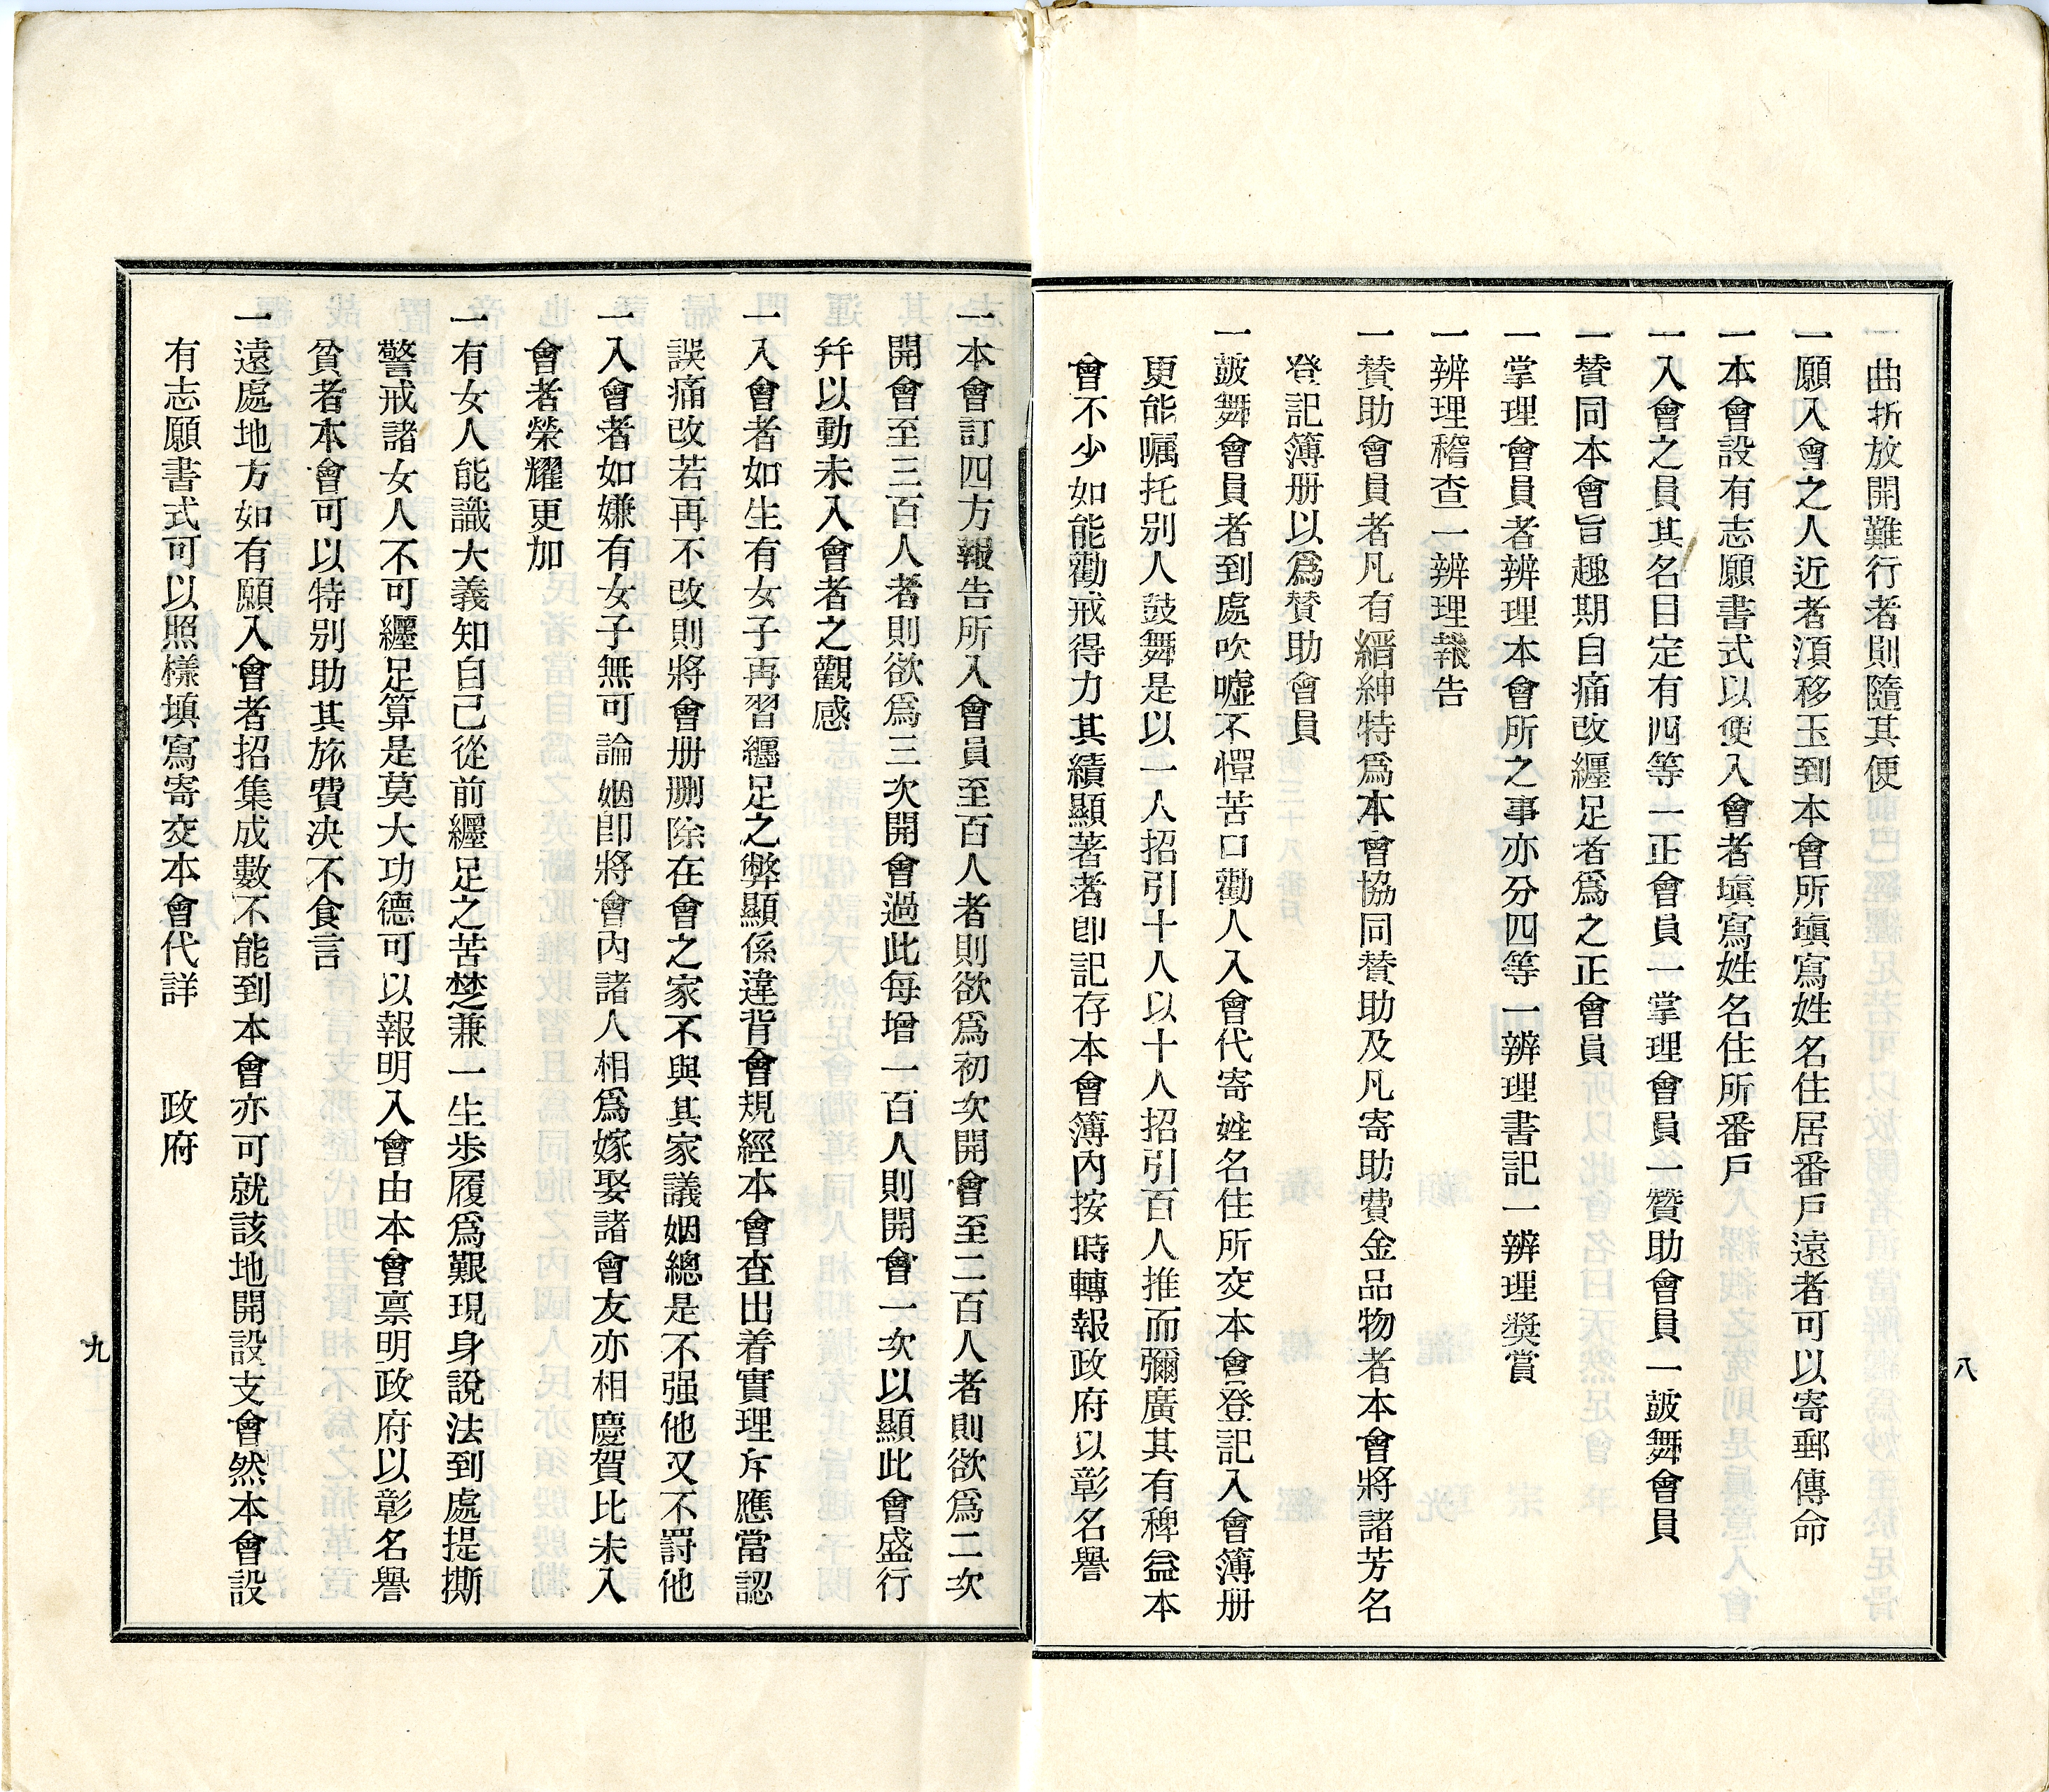 曲折放開難行者則隨其便
一願入會之人近者湏移玉到本會所塡寫姓名住居番戶遠者可以寄郵傳命
一本會設有志願書式以便入會者塡寫姓名住所番戶
一入會之員其名目定有四等一正會員一掌理會員一贊助會員一皷舞會員
一贊同本會旨趣期自痛改纒足者爲之正會員
一掌理會員者辨理本會所之事亦分四等一辨理書記一辨理奬賞
一辨理稽查一辨理報告
一贊助會員者凡有縉紳特爲本會協同贊助及凡寄助費金品物者本會將諸芳名
登記簿册以爲贊助會員
一皷舞會員者到處吹噓不憚苦口勸人入會代寄姓名住所交本會登記入會簿册
更能囑托別人鼓舞是以一人招引十人以十人招引百人推而彌廣其有稗益本
會不少如能勸戒得力其績顯著者卽記存本會簿內按時轉報政府以彰名譽
八
一本會訂四方報告所入會員至百人者則欲爲初次開會至二百人者則欲爲二次
開會至三百人者則欲爲三次開會過此每增一百人則開會一次以顯此會盛行
幷以動未入會者之觀感
一入會者如生有女子再習纒足之弊顯係違背會規經本會查出着實理斥應當認
誤痛改若再不改則將會册刪除在會之家不與其家議姻總是不强他又不罸他
一入會者如嫌有女子無可論姻卽將會內諸人相爲嫁娶諸會友亦相慶賀比未入
會者榮耀更加
一有女人能識大義知自己從前纒足之苦楚兼一生步履爲艱現身說法到處提撕
警戒諸女人不可纒足算是莫大功德可以報明入會由本會禀明政府以彰名譽
貧者本會可以特別助其旅費决不食言
一遠處地方如有願入會者招集成數不能到本會亦可就該地開設支會然本會設
有志願書式可以照樣塡寫寄交本會代詳　政府
九